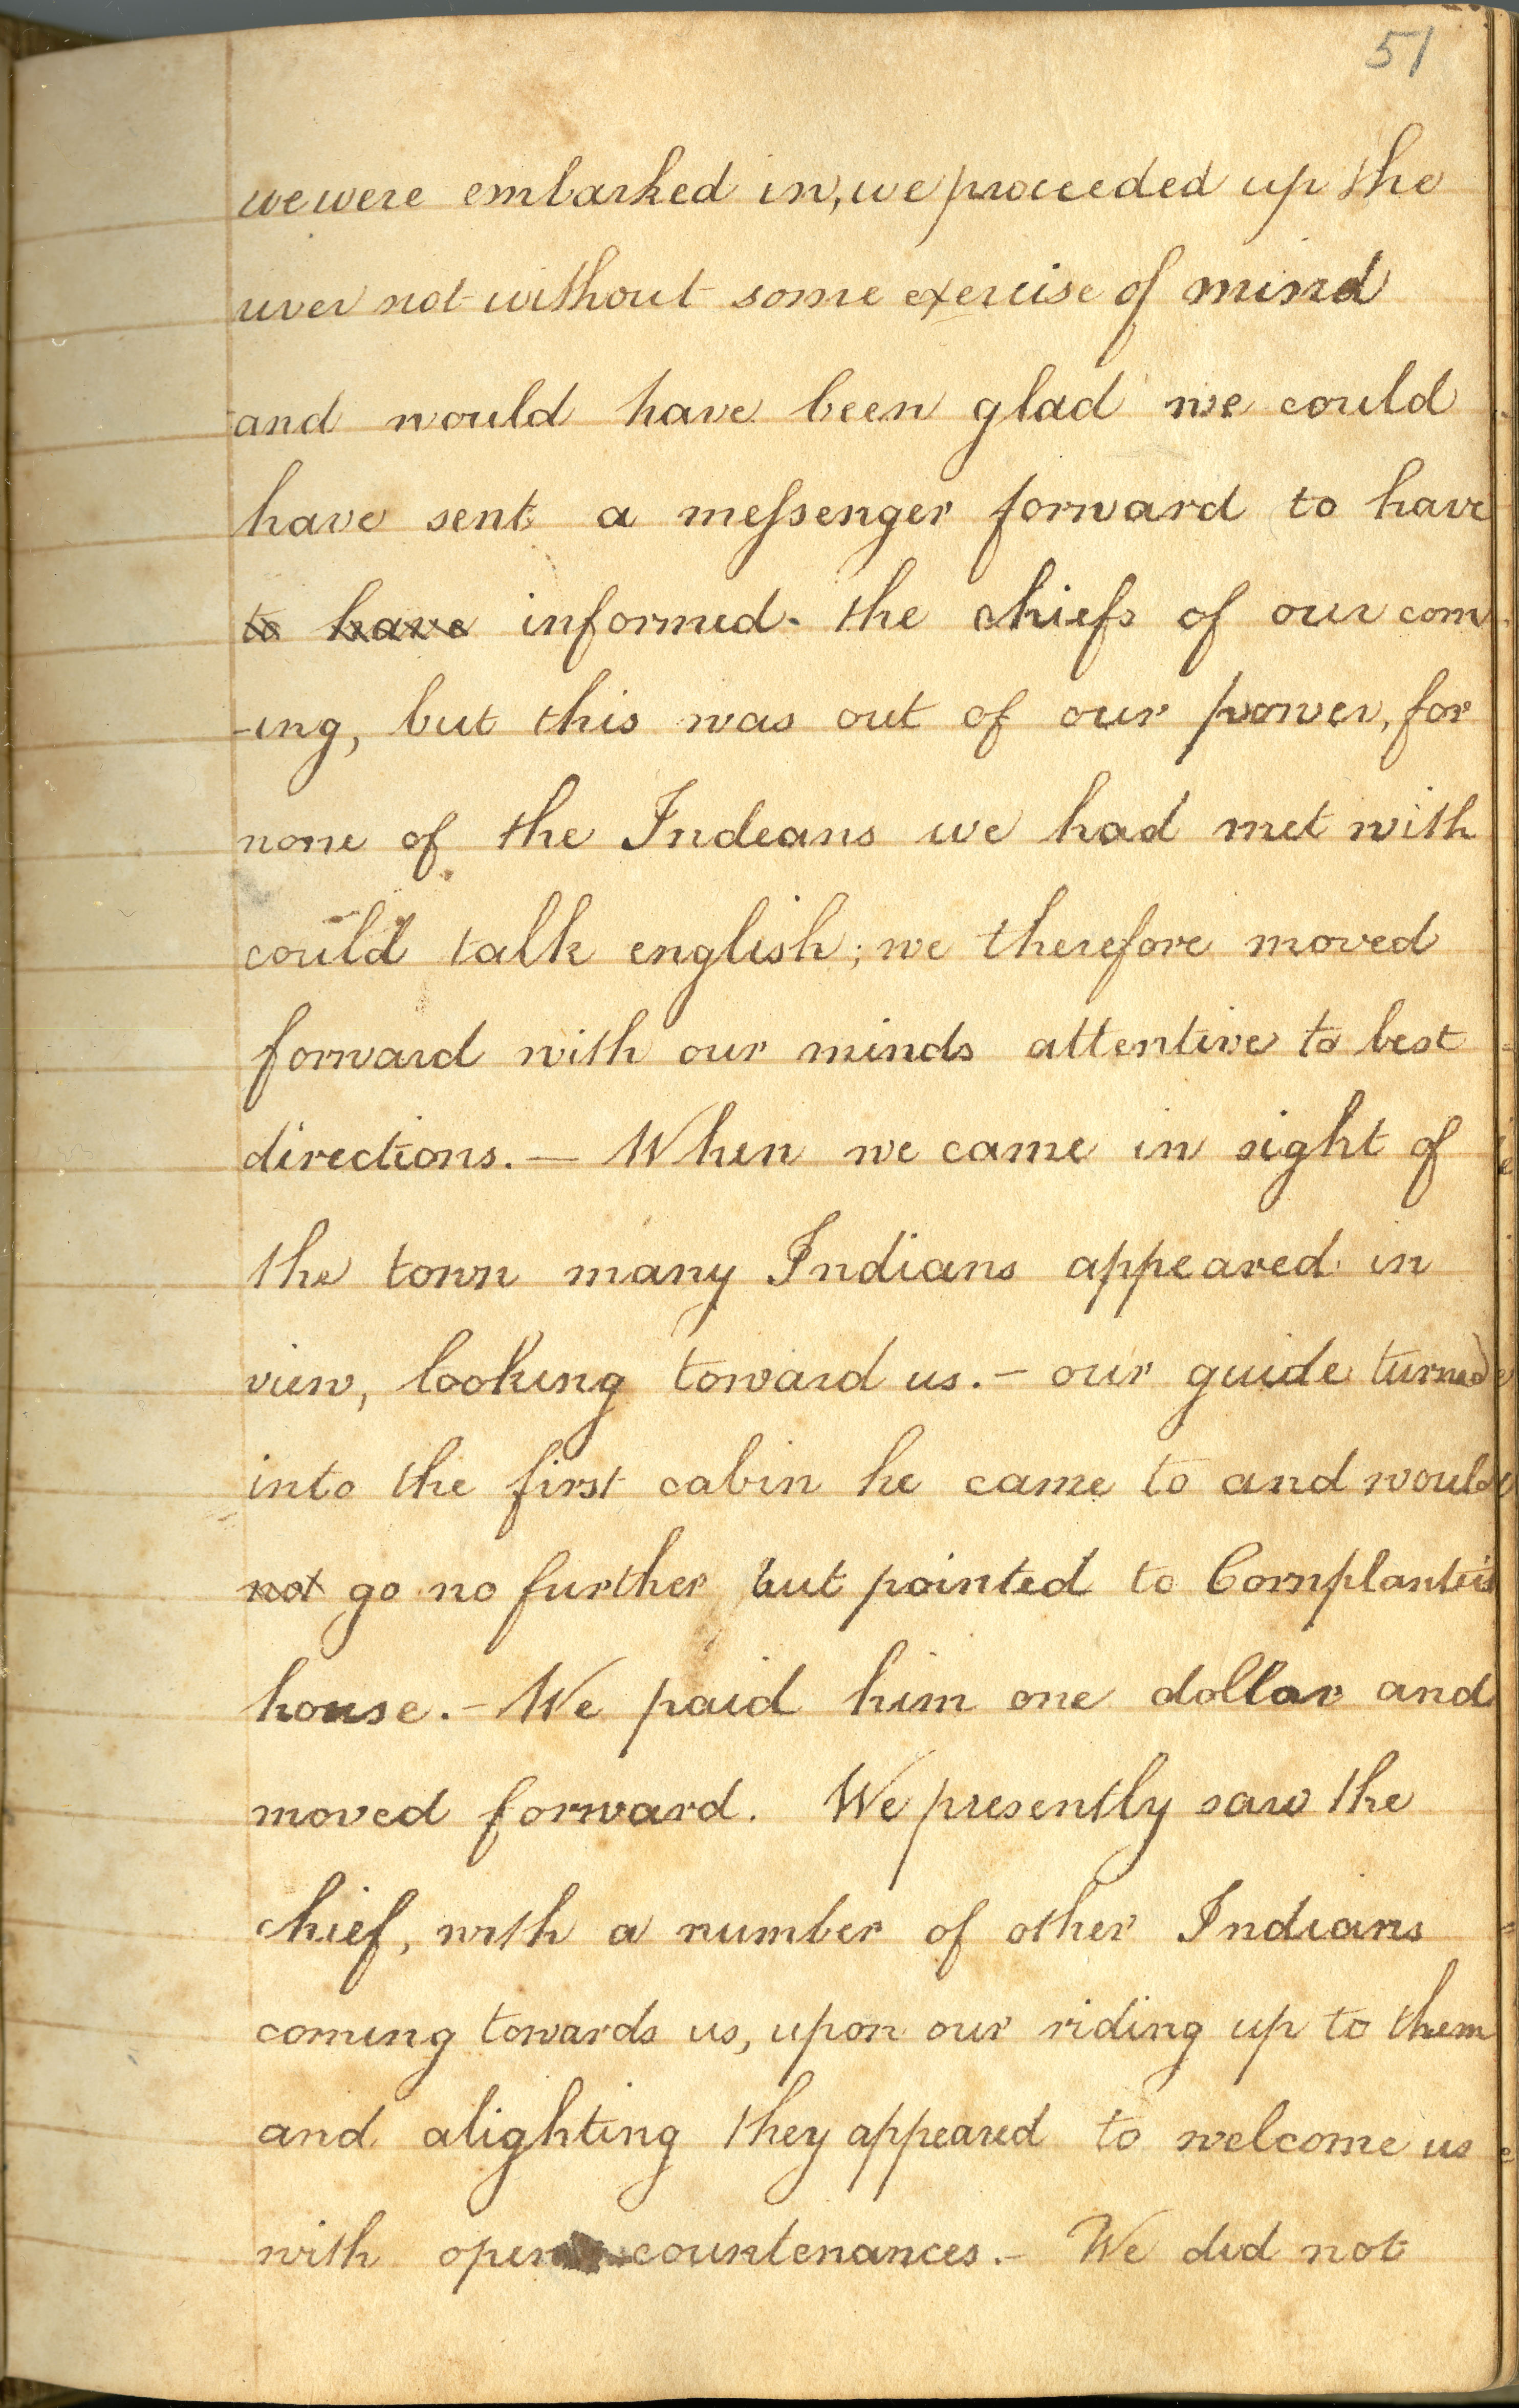 51
we were embarked in, we proceeded up the
river not without some exercise of mind
and would have been glad we could
have sent a messenger forward to have
to have informed the chiefs of our com
-ing, but this was out of our power, for
none of the Indeans we had met with
could talk english; we therefore moved
forward with our minds attentive to best
directions. — When we came in sight of
the town many Indians appeared in
view, looking toward us. — our guide turned
into the first cabin he came to and would
not go no further but pointed to Cornplanter's
house. — We paid him one dollar and
moved forward. We presently saw the
chief, with a number of other Indians
coming towards us, upon our riding up to them
and alighting they appeared to welcome us
with open countenances. — We did not